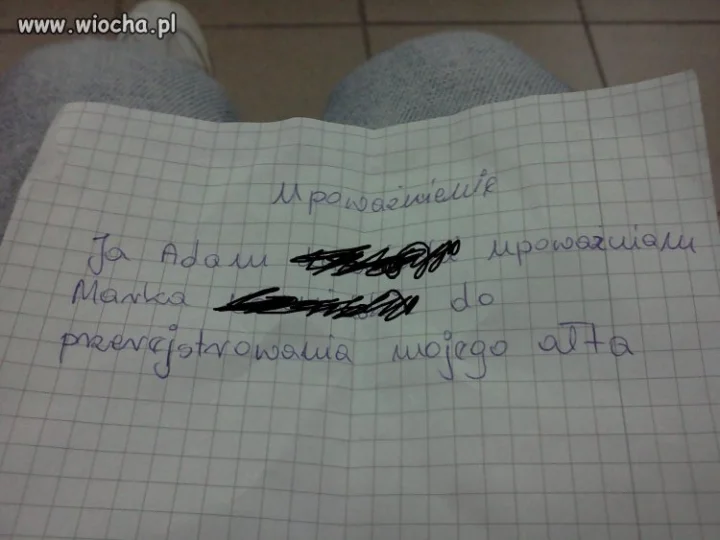 www.wiocha.pl
Upoważnienie
Ja Adam upoważniam
Marka do
przerejstrowania mojego ałta